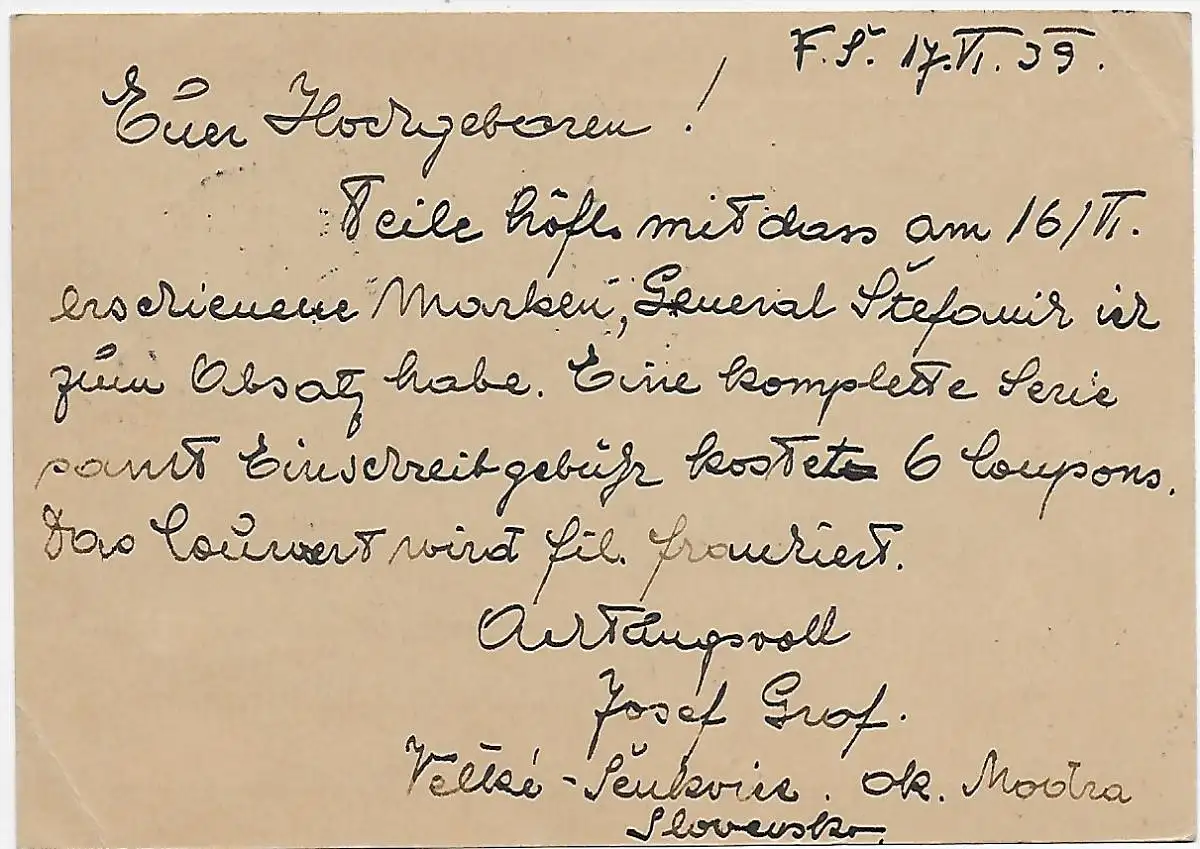 F.Š. 17.VI.39.
Euer Hochgeboren!
Teile höfl. mit dass am 16/VI.
erschienene Marken, General Štefanik ich
zum Absatz habe. Eine komplette Serie
samt Einschreibgebühr kostet 6 Coupons.
Das Couwert wird fil. frankiert.
Achtungsvoll
Josef Grof.
Velké-Šenkvice. ok. Modra
Slovensko.